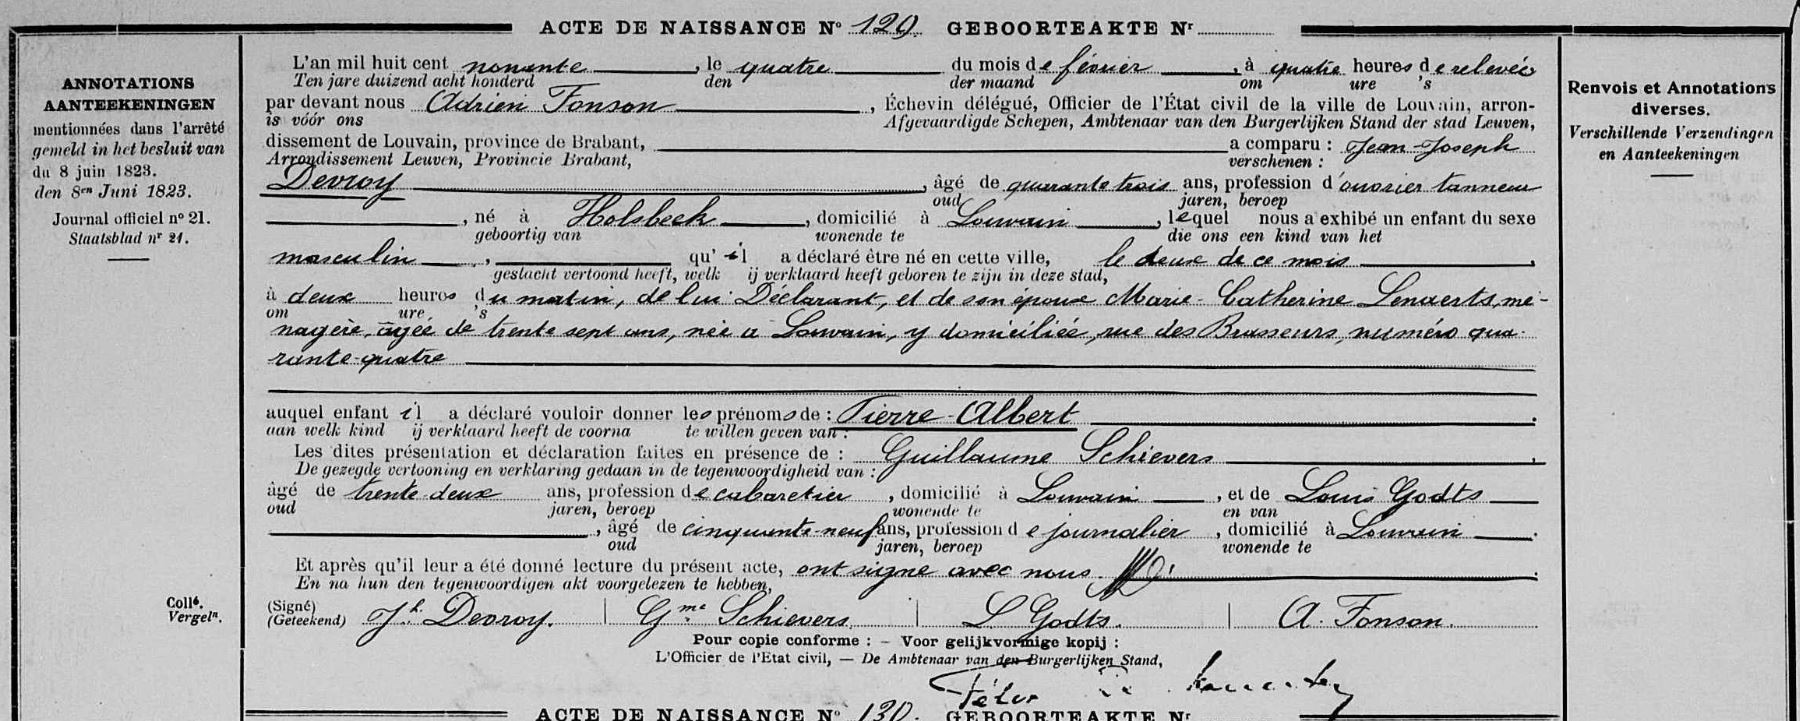 ACTE DE NAISSANCE No 129. GEBOORTEAKTE Nr
ANNOTATIONS
AANTEEKENINGEN
mentionnées dans l'arrêté
gemeld in het besluit van
du 8 juin 1823.
den 8en Juni 1823.
Journal officiel no 21.
Staatsblad nr 21.
L'an mil huit cent nonante, le quatre du mois de février, à quatre heures de relevée
Ten jare duizend acht honderd den der maand om ure 's
par devant nous Adrien Fonson, Échevin délégué, Officier de l'État civil de la ville de Louvain, arron-
is vóór ons Afgevaardigde Schepen, Ambtenaar van den Burgerlijken Stand der stad Leuven,
dissement de Louvain, province de Brabant, a comparu : Jean-Joseph
Arrondissement Leuven, Provincie Brabant, verschenen :
Devroy, âgé de quarante trois ans, profession d'ouvrier tanneur
oud jaren, beroep
, né à Holsbeek, domicilié à Louvain, lequel nous a exhibé un enfant du sexe
geboortig van wonende te die ons een kind van het
masculin, qu'il a déclaré être né en cette ville, le deux de ce mois,
geslacht vertoond heeft, welk ij verklaard heeft geboren te zijn in deze stad,
à deux heures du matin, de lui Déclarant, et de son épouse Marie-Catherine Lenaerts, mé-
om ure 's
nagère, âgée de trente sept ans, née à Louvain, y domiciliée, rue des Brasseurs, numéro qua-
rante-quatre
auquel enfant il a déclaré vouloir donner les prénoms de : Pierre-Albert.
aan welk kind ij verklaard heeft de voorna te willen geven van :
Les dites présentation et déclaration faites en présence de : Guillaume Schievers,
De gezegde vertooning en verklaring gedaan in de tegenwoordigheid van :
âgé de trente-deux ans, profession de cabaretier, domicilié à Louvain, et de Louis Godts
oud jaren, beroep wonende te en van
, âgé de cinquante-neuf ans, profession de journalier, domicilié à Louvain.
oud jaren, beroep wonende te
Et après qu'il leur a été donné lecture du présent acte, ont signé avec nous
En na hun den tegenwoordigen akt voorgelezen te hebben,
Collé.
Vergeln.
(Signé)
(Geteekend) Jh. Devroy. Gme Schievers. L Godts. A. Fonson.
Pour copie conforme : – Voor gelijkvormige kopij :
L'Officier de l'Etat civil, — De Ambtenaar van den Burgerlijken Stand,
ACTE DE NAISSANCE No 130. GEBOORTEAKTE Nr
Renvois et Annotations
diverses.
Verschillende Verzendingen
en Aanteekeningen